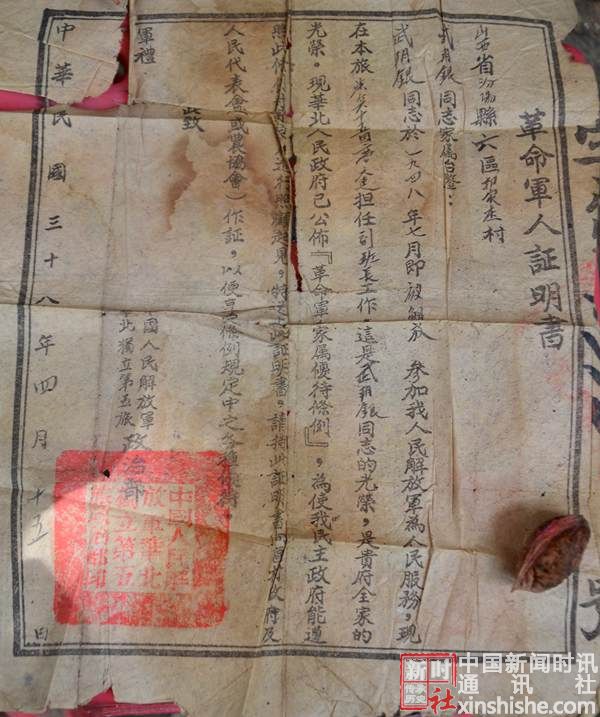 革命軍人証明書
山西省汾陽縣六區 村
武 銀同志家屬台鑒：
武 銀同志於一九四八年七月即被解放 參加我人民解放軍為人民服務，現
在本旅 担任副班長工作，這是武 銀同志的光榮，是貴府全家的
光榮。現華北人民政府已公佈『革命軍家屬優待條例』，為使我民主政府能遵
照此條 見，特 此証明書，請持此証明書 政府及
人民代表會（或農協會）作証，以便享 條例規定中之各種優待
此致
軍禮
國人民解放軍
北獨立第五旅政治部
中華民國三十八年四月十五日
中國人民解
放軍華北
獨立第五
新时
传承
历史
社
中国新闻时讯
通讯社
xinshishe.com